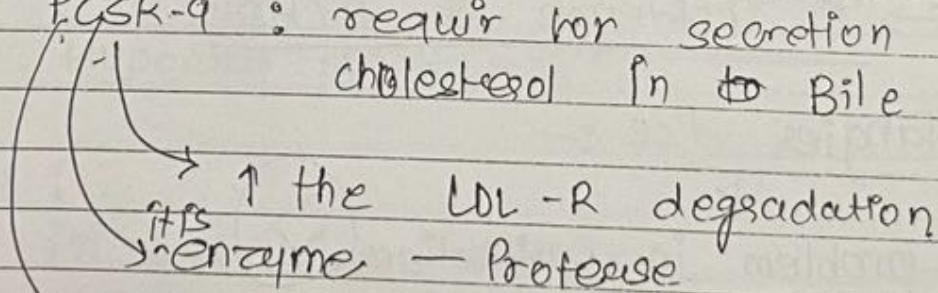 PCSK-9 : requir for secretion
cholesterol In to Bile
→ ↑ the LDL-R degradation
it is
enzyme — Protease